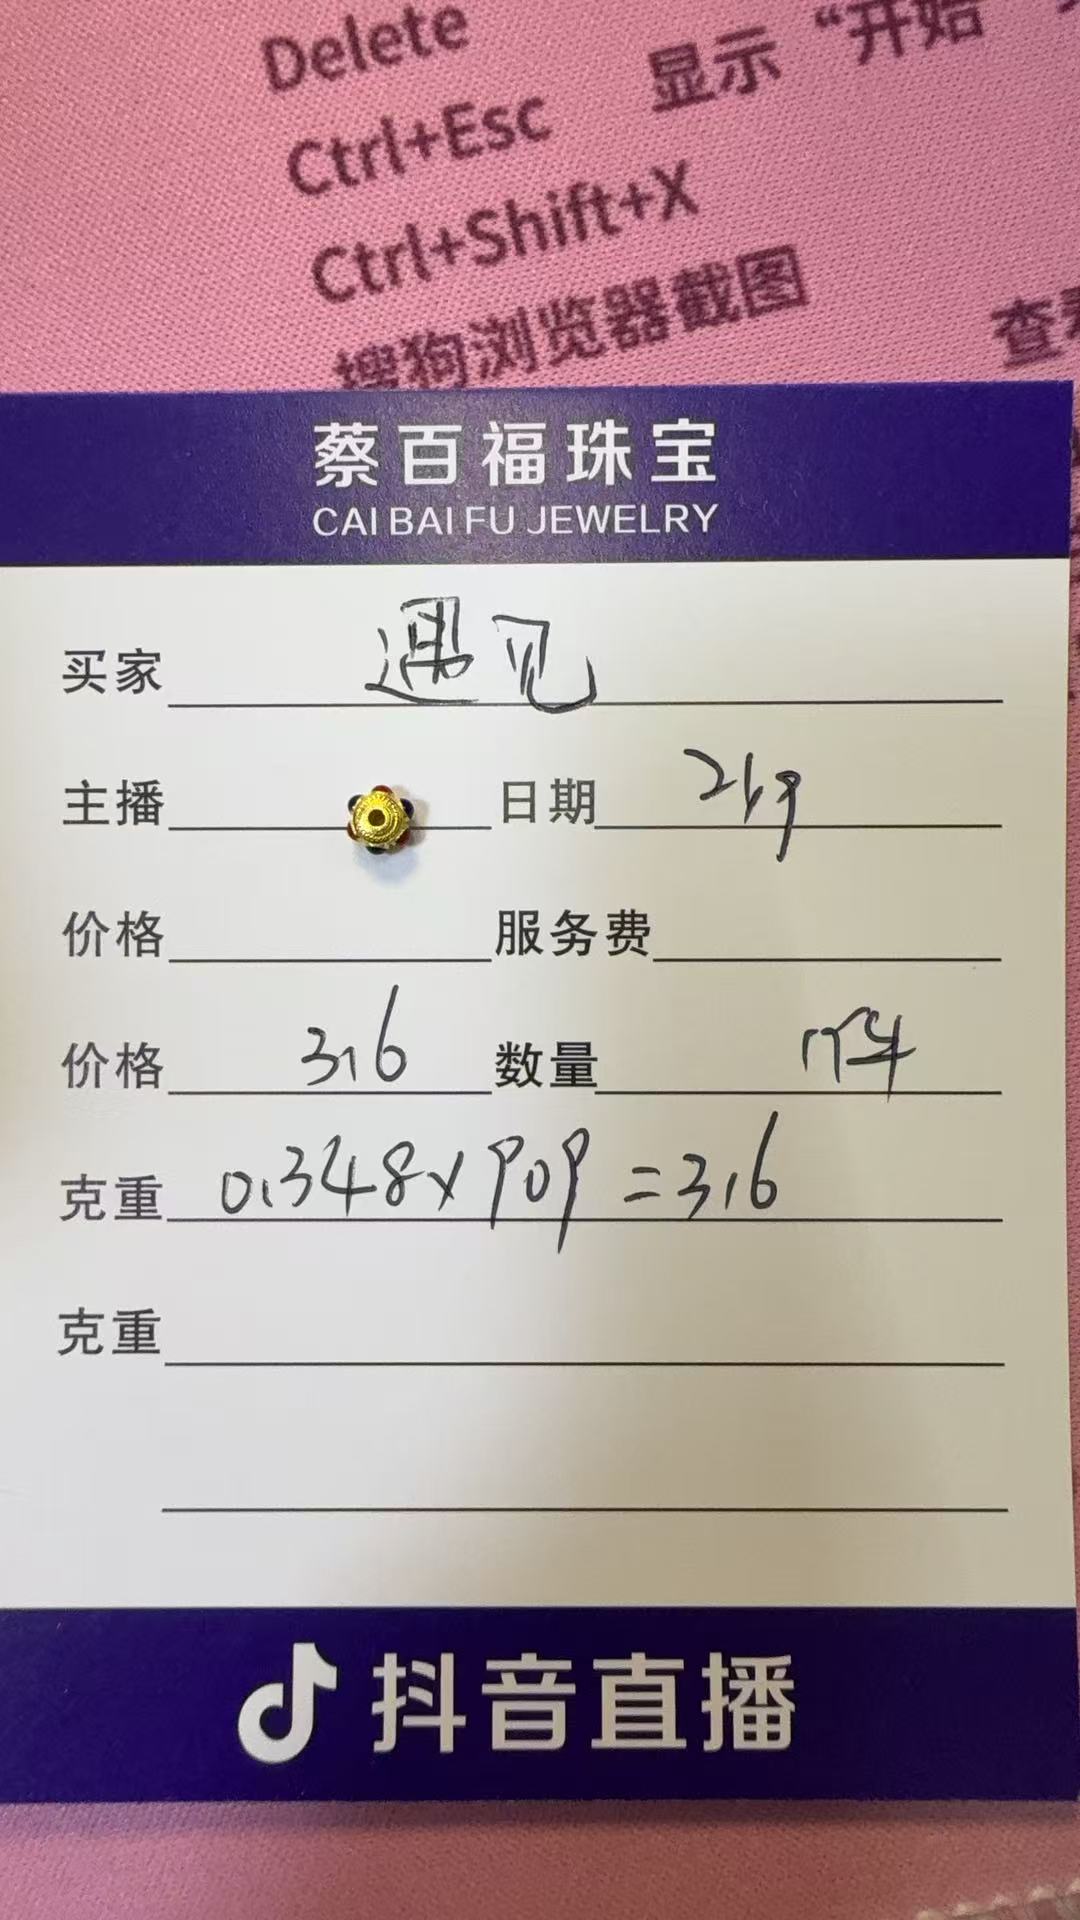 Delete
Ctrl+Esc 显示“开始”
Ctrl+Shift+X
搜狗浏览器截图 查看
蔡百福珠宝
CAI BAI FU JEWELRY
买家 遇见
主播 日期 2.19
价格 服务费
价格 316 数量 1件
克重 0.348x909=316
克重
抖音直播